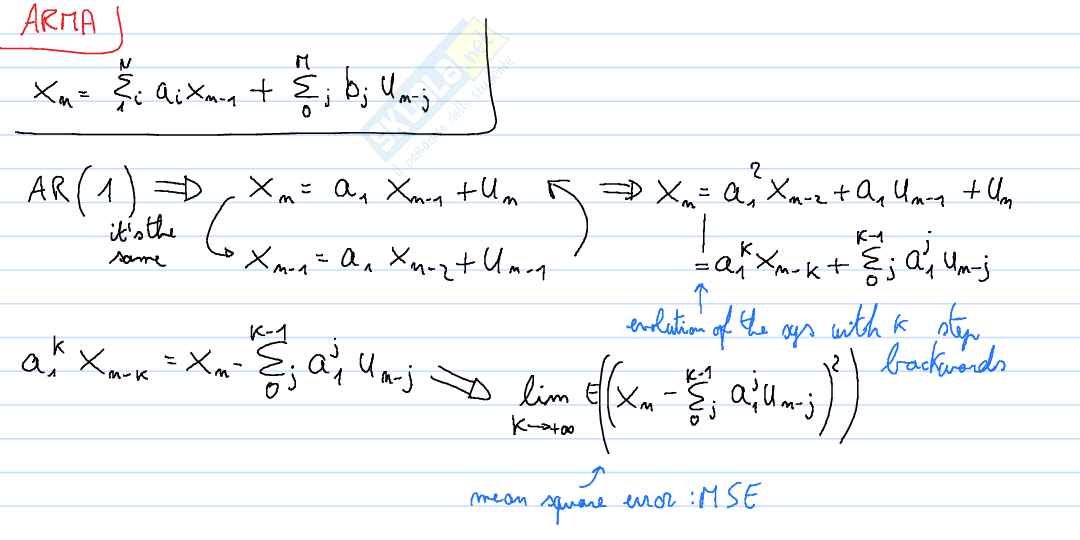 ARMA
x_n = Σ_{1}^{N}_i a_i x_{n-1} + Σ_{0}^{M}_j b_j u_{n-j}
AR(1) ⇒ x_n = a_1 x_{n-1} + u_n ⇒ x_n = a_1^2 x_{n-2} + a_1 u_{n-1} + u_n
it's the same
x_{n-1} = a_1 x_{n-2} + u_{n-1}
= a_1^k x_{n-k} + Σ_{0}^{k-1}_j a_1^j u_{n-j}
evolution of the sys with k step
backwards
a_1^k x_{n-k} = x_n - Σ_{0}^{k-1}_j a_1^j u_{n-j} ⇒ lim_{k→+∞} E((x_n - Σ_{0}^{k-1}_j a_1^j u_{n-j})^2)
mean square error : MSE